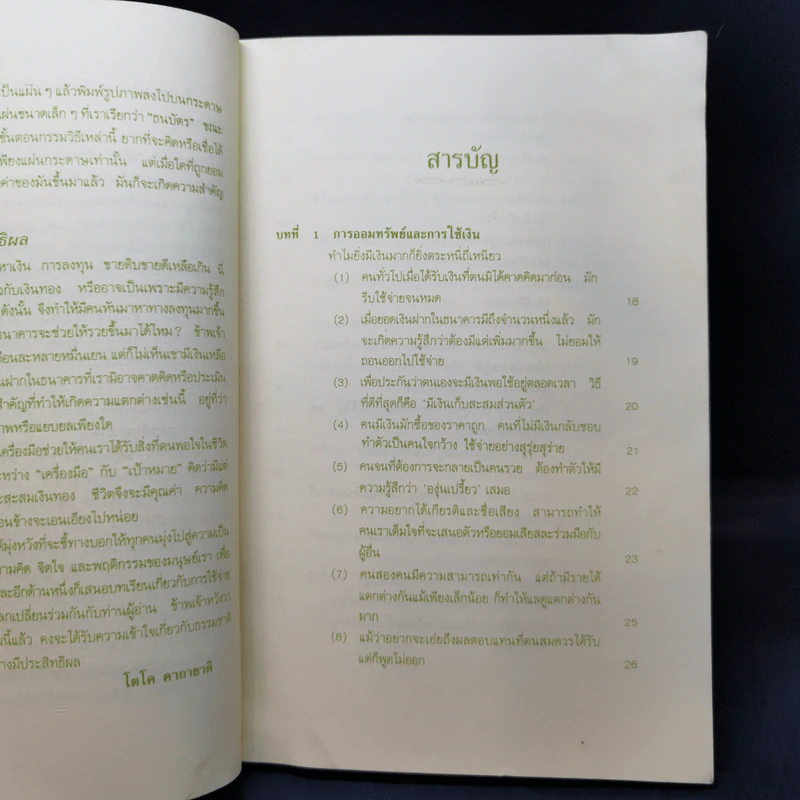 เป็นแผ่น ๆ แล้วพิมพ์รูปภาพลงไปบนกระดาษ
แผ่นขนาดเล็ก ๆ ที่เราเรียกว่า "ธนบัตร" ขณะ
ขั้นตอนกรรมวิธีเหล่านี้ ยากที่จะคิดหรือเชื่อได้
เพียงแผ่นกระดาษเท่านั้น แต่เมื่อใดที่ถูกยอม
ค่าของมันขึ้นมาแล้ว มันก็จะเกิดความสำคัญ
ธิผล
หาเงิน การลงทุน ขายดิบขายดีเหลือเกิน นี่
วกับเงินทอง หรืออาจเป็นเพราะมีความรู้สึก
ดังนั้น จึงทำให้มีคนหันมาหาทางลงทุนมากขึ้น
ธนาคารจะช่วยให้รวยขึ้นมาได้ไหม? ข้าพเจ้า
ดือนละหลายหมื่นเยน แต่ก็ไม่เห็นเขามีเงินเหลือ
นฝากในธนาคารที่เรามิอาจคาดคิดหรือประเมิน
สำคัญที่ทำให้เกิดความแตกต่างเช่นนี้ อยู่ที่ว่า
าพหรือแยบยลเพียงใด
ครื่องมือช่วยให้คนเราได้สิ่งที่ตนพอใจในชีวิต
ะหว่าง "เครื่องมือ" กับ "เป้าหมาย" คิดว่ามีแต่
ะสะสมเงินทอง ชีวิตจึงจะมีคุณค่า ความคิด
อนข้างจะเอนเอียงไปหน่อย
มุ่งหวังที่จะชี้ทางบอกให้ทุกคนมุ่งไปสู่ความเป็น
วามคิด จิตใจ และพฤติกรรมของมนุษย์เรา เพื่อ
ละอีกด้านหนึ่งก็เสนอบทเรียนเกี่ยวกับการใช้จ่าย
ลกเปลี่ยนร่วมกันกับท่านผู้อ่าน ข้าพเจ้าหวังว่า
มนี้แล้ว คงจะได้รับความเข้าใจเกี่ยวกับธรรมชาติ
างมีประสิทธิผล
โตโค คากายาติ
สารบัญ
บทที่ 1 การออมทรัพย์และการใช้เงิน
ทำไมยิ่งมีเงินมากก็ยิ่งตระหนี่ถี่เหนียว
(1) คนทั่วไปเมื่อได้รับเงินที่ตนมิได้คาดคิดมาก่อน มัก
รีบใช้จ่ายจนหมด 18
(2) เมื่อยอดเงินฝากในธนาคารมีถึงจำนวนหนึ่งแล้ว มัก
จะเกิดความรู้สึกว่าต้องมีแต่เพิ่มมากขึ้น ไม่ยอมให้
ถอนออกไปใช้จ่าย 19
(3) เพื่อประกันว่าตนเองจะมีเงินพอใช้อยู่ตลอดเวลา วิธี
ที่ดีที่สุดก็คือ 'มีเงินเก็บสะสมส่วนตัว' 20
(4) คนมีเงินมักซื้อของราคาถูก คนที่ไม่มีเงินกลับชอบ
ทำตัวเป็นคนใจกว้าง ใช้จ่ายอย่างสุรุ่ยสุร่าย 21
(5) คนจนที่ต้องการจะกลายเป็นคนรวย ต้องทำตัวให้มี
ความรู้สึกว่า 'องุ่นเปรี้ยว' เสมอ 22
(6) ความอยากได้เกียรติและชื่อเสียง สามารถทำให้
คนเราเต็มใจที่จะเสนอตัวหรือยอมเสียสละร่วมมือกับ
ผู้อื่น 23
(7) คนสองคนมีความสามารถเท่ากัน แต่ถ้ามีรายได้
แตกต่างกันแม้เพียงเล็กน้อย ก็ทำให้แลดูแตกต่างกัน
มาก 25
(8) แม้ว่าอยากจะเอ่ยถึงผลตอบแทนที่ตนสมควรได้รับ
แต่ก็พูดไม่ออก 26